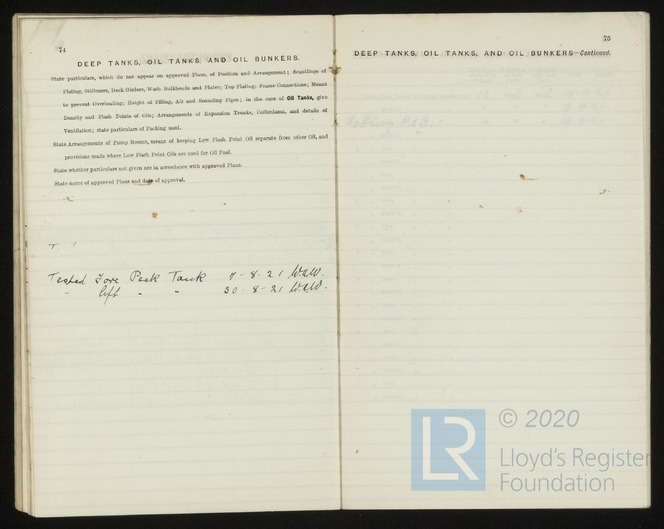 74
DEEP TANKS, OIL TANKS, AND OIL BUNKERS.
State particulars, which do not appear on approved Plans, of Position and Arrangement; Scantlings of
Plating, Stiffeners, Deck Girders, Wash Bulkheads and Plates; Top Plating; Frame Connections; Means
to prevent Overloading; Height of Filling, Air and Sounding Pipes; in the case of Oil Tanks, give
Density and Flash Points of Oils; Arrangements of Expansion Trunks, Cofferdams, and details of
Ventilation; state particulars of Packing used.
State Arrangements of Pump Rooms, means of keeping Low Flash Point Oil separate from other Oil, and
provisions made where Low Flash Point Oils are used for Oil Fuel.
State whether particulars not given are in accordance with approved Plans.
State name of approved Plans and date of approval.
Tested Fore Peak Tank 7-8-21 W&W.
" Aft - - 30-8-21 W&W.
75
DEEP TANKS, OIL TANKS, AND OIL BUNKERS—Continued.
LR
© 2020
Lloyd's Register
Foundation